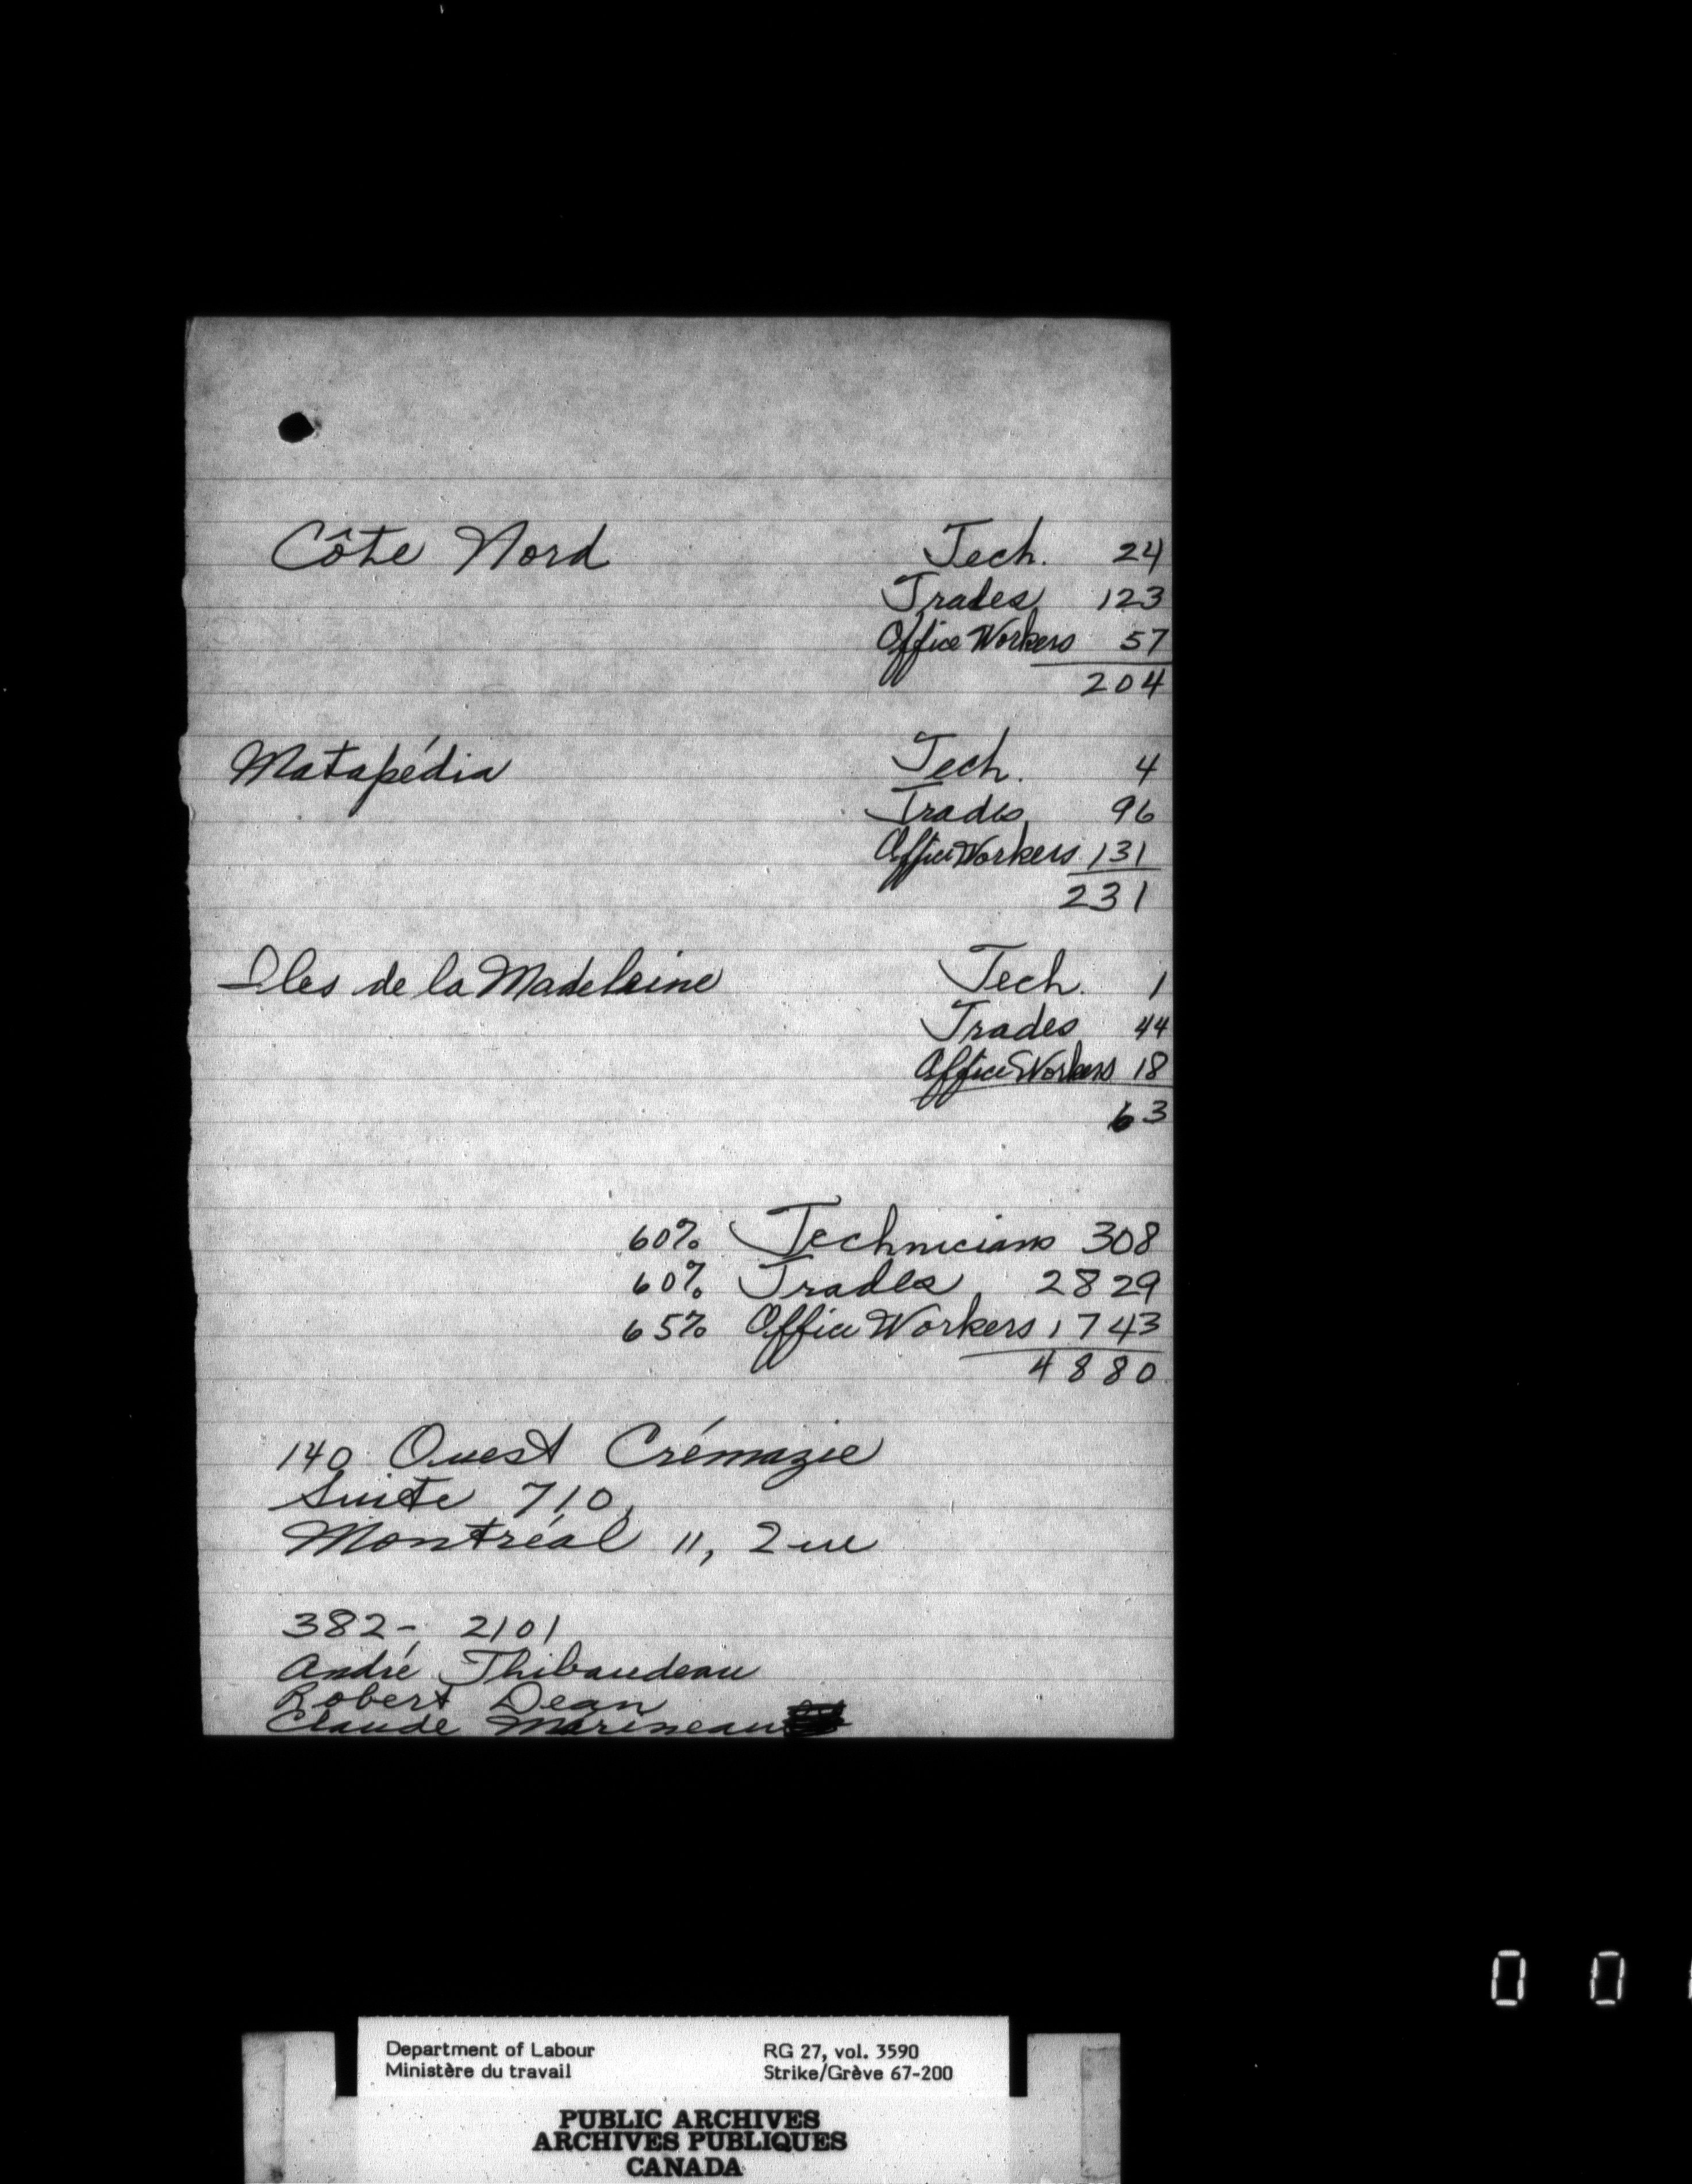 Côte Nord Tech. 24
Trades 123
Office Workers 57
204
Matapédia Tech. 4
Trades 96
Office Workers 131
231
Iles de la Madeleine Tech. 1
Trades 44
Office Workers 18
63
60% Technicians 308
60% Trades 2829
65% Office Workers 1743
4880
140 Ouest Crémazie
Suite 710,
Montréal 11, Que
382-2101
André Thibaudeau
Robert Dean
Claude Marineau
0 0
Department of Labour RG 27, vol. 3590
Ministère du travail Strike/Grève 67-200
PUBLIC ARCHIVES
ARCHIVES PUBLIQUES
CANADA